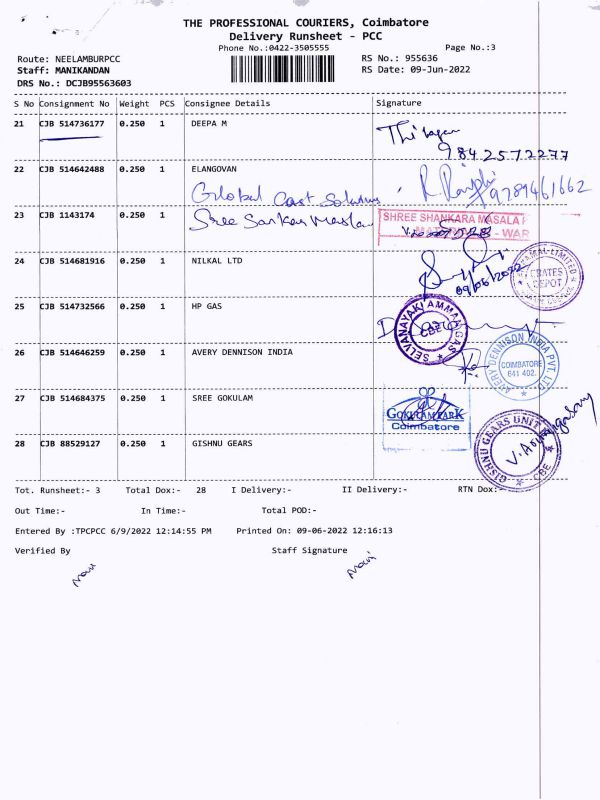 THE PROFESSIONAL COURIERS, Coimbatore
Delivery Runsheet - PCC
Phone No.:0422-3505555
Page No.:3
Route: NEELAMBURPCC
RS No.: 955636
Staff: MANIKANDAN
RS Date: 09-Jun-2022
DRS No.: DCJB95563603
S No Consignment No Weight PCS Consignee Details Signature
21 CJB 514736177 0.250 1 DEEPA M
9842572277
22 CJB 514642488 0.250 1 ELANGOVAN
Global Cast Solutions
9789461662
23 CJB 1143174 0.250 1 Sree Sankar Masala
SHREE SHANKARA MASALA
- WAR
24 CJB 514681916 0.250 1 NILKAL LTD
09/06/2022
LIMITED
CRATES
DEPOT
25 CJB 514732566 0.250 1 HP GAS
SELVANAYAKI AMMAN GAS
CBE
26 CJB 514646259 0.250 1 AVERY DENNISON INDIA
AVERY DENNISON INDIA PVT. LTD
COIMBATORE
641 402.
27 CJB 514684375 0.250 1 SREE GOKULAM
GOKULAM PARK
Coimbatore
28 CJB 88529127 0.250 1 GISHNU GEARS
GISHNU GEARS UNIT
CBE
Tot. Runsheet:- 3 Total Dox:- 28 I Delivery:- II Delivery:- RTN Dox:-
Out Time:- In Time:- Total POD:-
Entered By :TPCPCC 6/9/2022 12:14:55 PM Printed On: 09-06-2022 12:16:13
Verified By Staff Signature
Mani